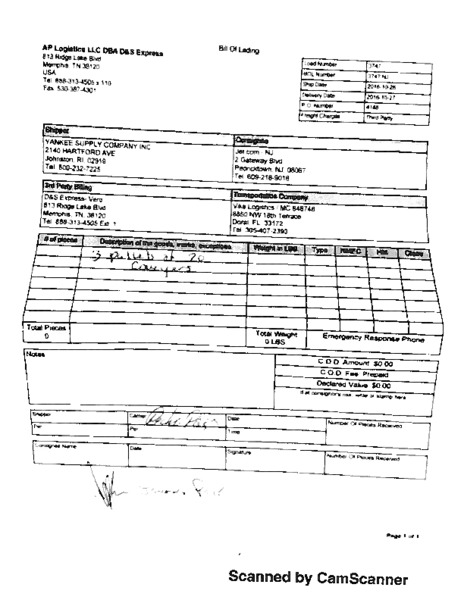 AP Logistics LLC DBA D&S Express
Bill Of Lading
813 Ridge Lake Blvd
Memphis TN 38120
USA
Tel: 888-313-4505 x 110
Fax: 530-387-4301
Load Number 3747
BOL Number 3747 NJ
Ship Date 2016-10-26
Delivery Date 2016-10-27
P.O. Number 4148
Freight Charges Third Party
Shipper
Consignee
YANKEE SUPPLY COMPANY INC
2140 HARTFORD AVE
Johnston, RI, 02919
Tel: 800-232-7225
Jet.com - NJ
2 Gateway Blvd
Pedricktown, NJ, 08067
Tel: 609-218-9018
3rd Party Billing
Transportation Company
D&S Express- Vero
813 Ridge Lake Blvd
Memphis, TN, 38120
Tel: 888-313-4505 Ext: 1
Logistics MC 848746
8850 NW 18th Terrace
Doral, FL, 33172
Tel: 305-407-2390
# of pieces Description of the goods, marks, exceptions Weight in LBS Type NMFC HM Class
3 pallets of 20
Total Pieces
0
Total Weight
0 LBS
Emergency Response Phone
Notes
C.O.D. Amount: $0.00
C.O.D. Fee: Prepaid
Declared Value: $0.00
Shipper
Carrier
Date
Number Of Pieces Received
Per
Per
Time
Consignee Name
Date
Signature
Number Of Pieces Received
Page 1 of 1
Scanned by CamScanner